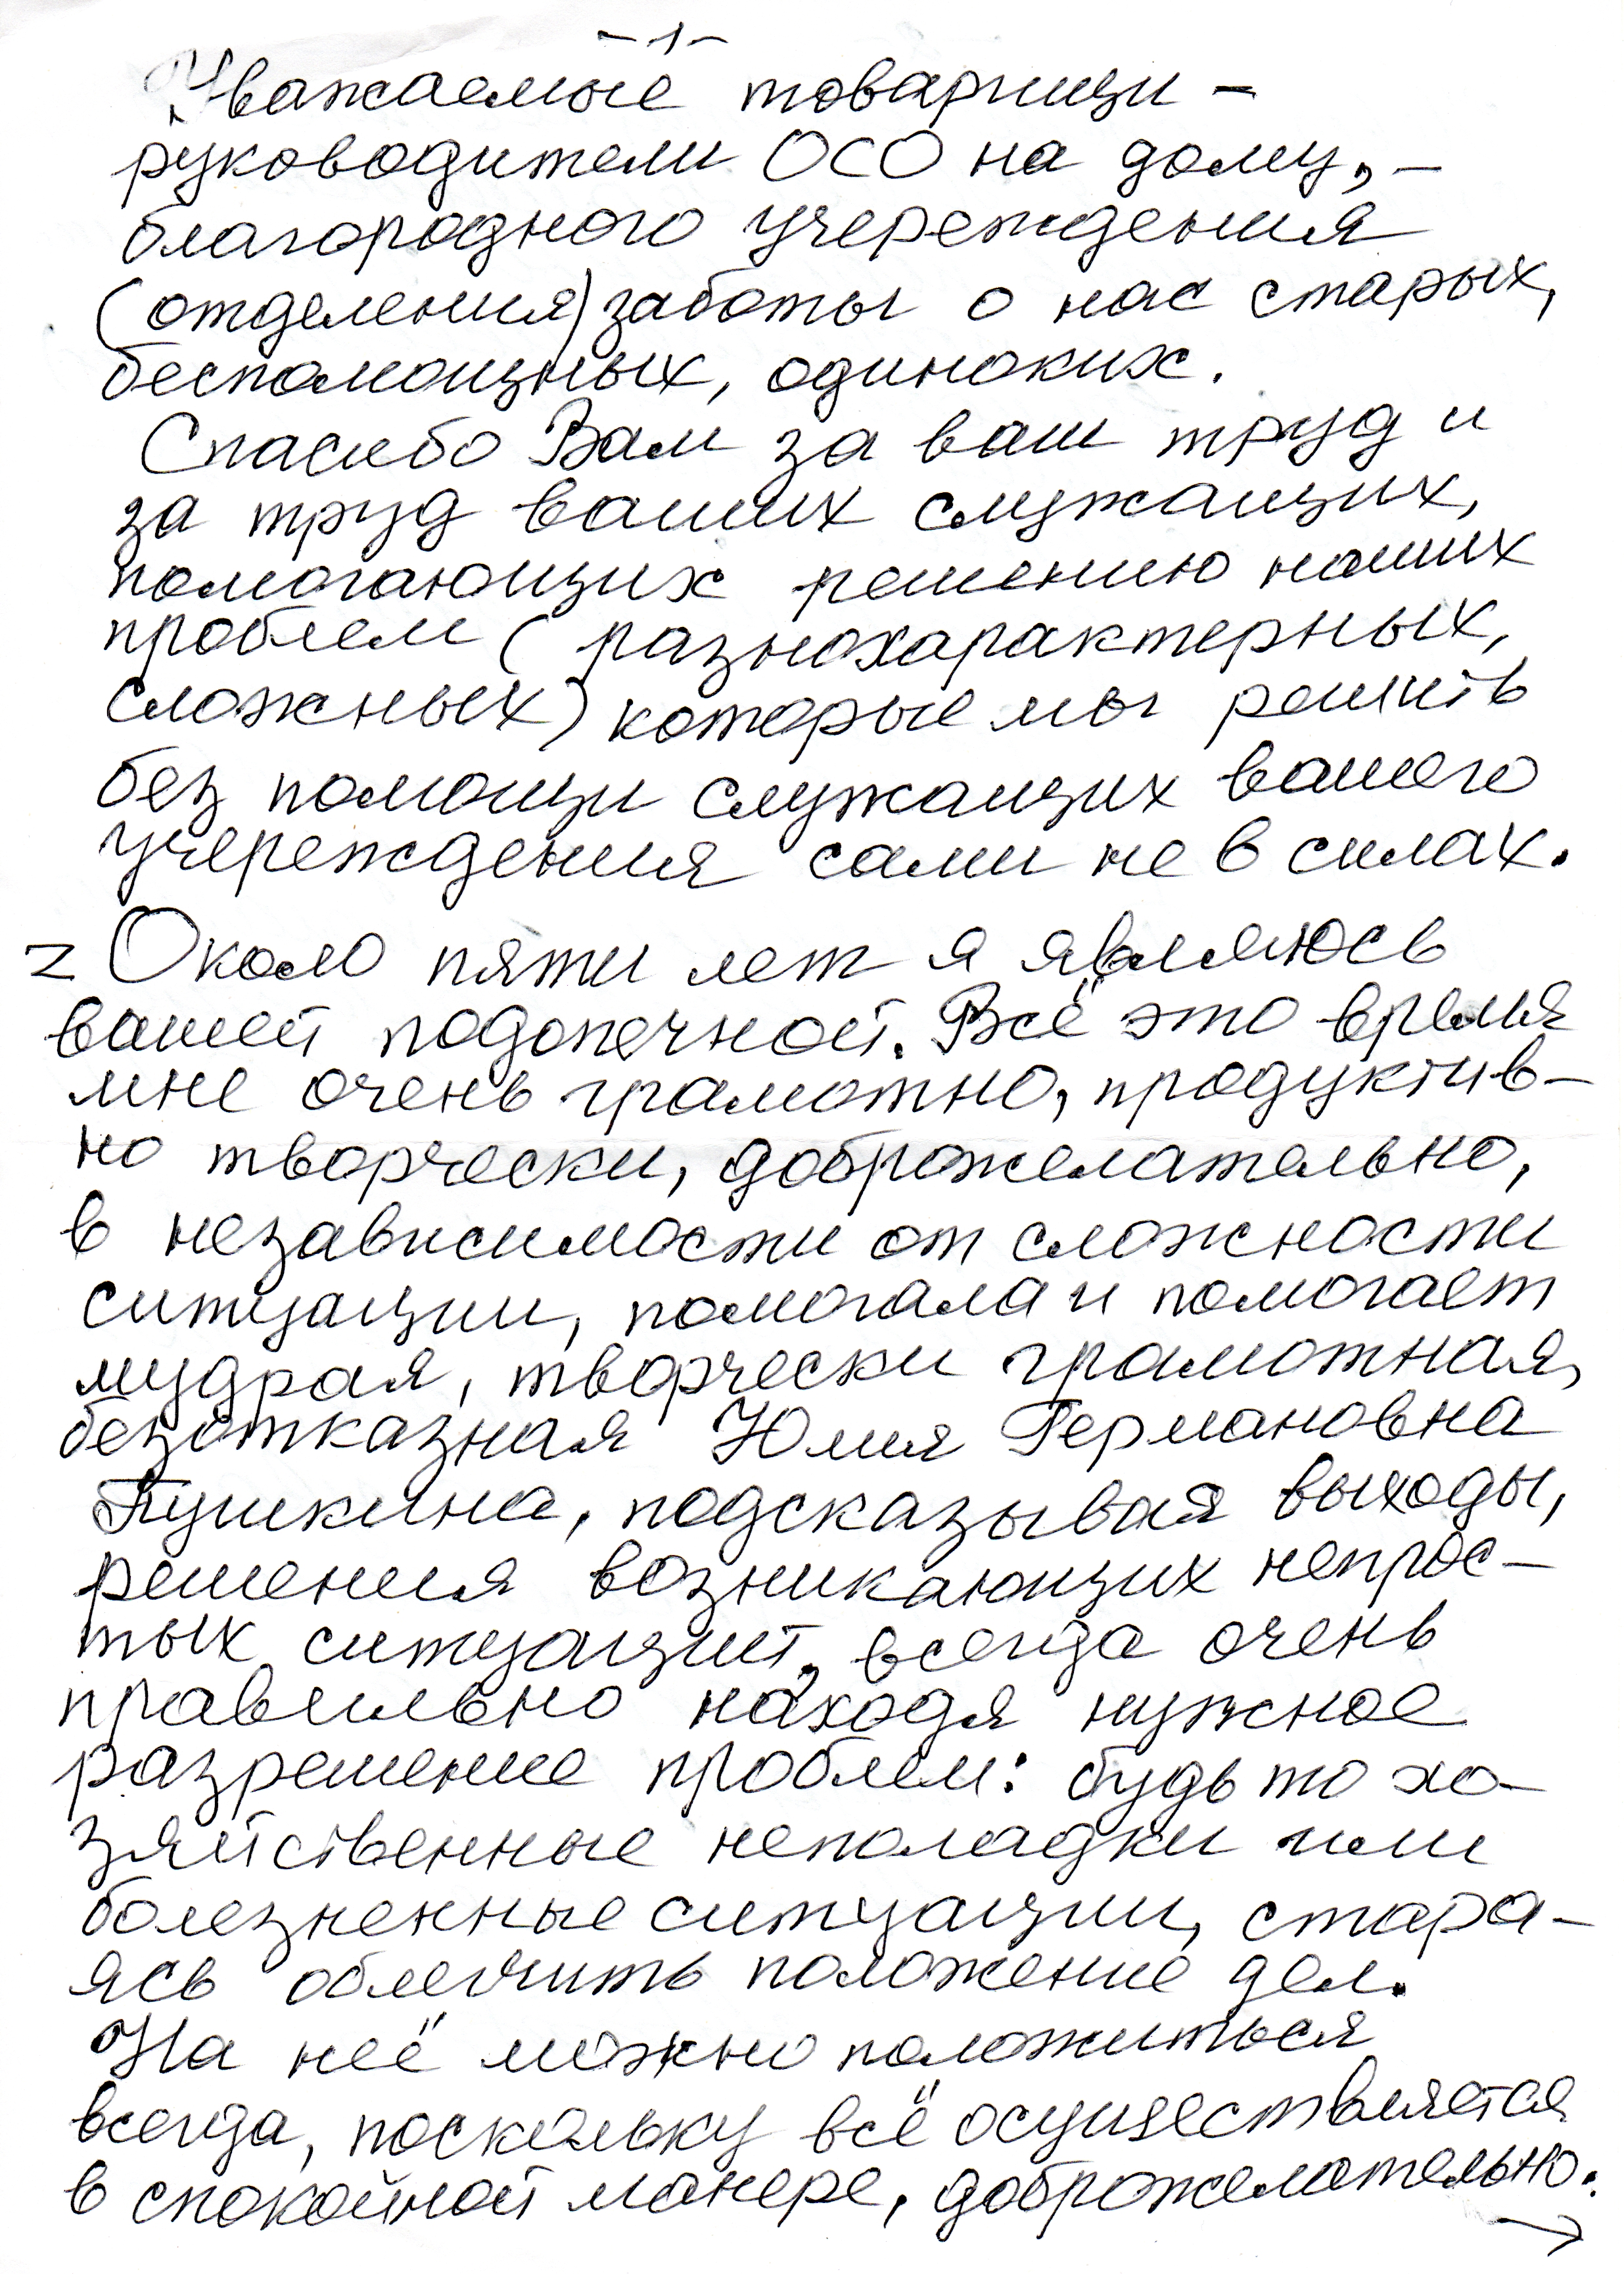 -1-
Уважаемые товарищи -
руководители ОСО на дому, -
благородного учереждения
(отделения) заботы о нас старых,
беспомощных, одиноких.
Спасибо Вам за ваш труд и
за труд ваших служащих,
помогающих решению наших
проблем (разнохарактерных,
сложных) которые мы решить
без помощи служащих вашего
учереждения сами не в силах.
Z Около пяти лет я являюсь
вашей подопечной. Всё это время
мне очень грамотно, продуктив-
но творчески, доброжелательно,
в независимости от сложности
ситуации, помогала и помогает
мудрая, творчески грамотная,
безотказная Юлия Германовна
Пушкина, подсказывая выходы,
решения возникающих непрос-
тых ситуаций, всегда очень
правильно находя нужное
разрешение проблем: будь то хо-
зяйственные неполадки или
болезненные ситуации, стара-
ясь облегчить положение дел.
На неё можно положиться
всегда, поскольку всё осуществляется
в спокойной манере, доброжелательно.
→